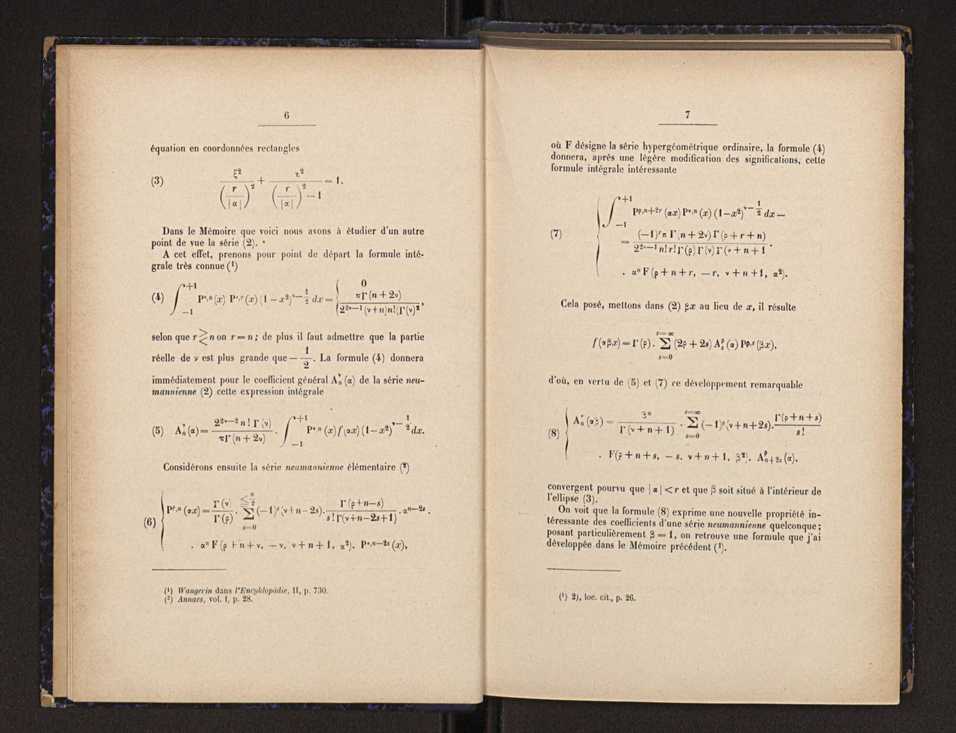 6
équation en coordonnées rectangles
(3) ξ²/(r/|α|)² + η²/((r/|α|)² − 1) = 1.
Dans le Mémoire que voici nous avons à étudier d'un autre
point de vue la série (2).
A cet effet, prenons pour point de départ la formule inté-
grale très connue (¹)
(4) ∫₋₁⁺¹ Pᵛ,ⁿ(x) Pᵛ,ʳ(x) (1−x²)^(ν−1/2) dx = { 0 ; πΓ(n+2ν) / (2^(2ν−1) (ν+n) n! (Γ(ν))²,
selon que r ≷ n on r = n; de plus il faut admettre que la partie
réelle de ν est plus grande que − 1/2. La formule (4) donnera
immédiatement pour le coefficient général Aᵛₙ(α) de la série neu-
mannienne (2) cette expression intégrale
(5) Aᵛₙ(α) = 2^(2ν−2) n! Γ(ν) / πΓ(n+2ν) . ∫₋₁⁺¹ Pᵛ,ⁿ(x) f(αx) (1−x²)^(ν−1/2) dx.
Considérons ensuite la série neumannienne élémentaire (²)
(6) Pᵛ,ⁿ(αx) = Γ(ν)/Γ(ρ) . Σ_(s=0)^(≤n/2) (−1)ˢ (ν+n−2s) . Γ(ρ+n−s) / s! Γ(ν+n−2s+1) . α^(n−2s) .
. αⁿ F(ρ+n+ν, −ν, ν+n+1, α²). P^(ν,n−2s)(x),
(¹) Wangerin dans l'Encyklopädie, II, p. 730.
(²) Annaes, vol. I, p. 28.
7
où F désigne la série hypergéométrique ordinaire, la formule (4)
donnera, après une légère modification des significations, cette
formule intégrale intéressante
(7) ∫₋₁⁺¹ P^(ρ,n+2r)(αx) Pᵛ,ⁿ(x) (1−x²)^(ν−1/2) dx =
= (−1)ʳ π Γ(n+2ν) Γ(ρ+r+n) / 2^(2ν−1) n! r! Γ(ρ) Γ(ν) Γ(ν+n+1 .
. αⁿ F(ρ+n+r, −r, ν+n+1, α²).
Cela posé, mettons dans (2) βx au lieu de x, il résulte
f(αβx) = Γ(ρ). Σ_(s=0)^(s=∞) (2ρ+2s) A^ρ_s(α) P^(ρ,s)(βx),
d'où, en vertu de (5) et (7) ce développement remarquable
(8) Aᵛₙ(αβ) = βⁿ / Γ(ν+n+1) . Σ_(s=0)^(s=∞) (−1)ˢ (ν+n+2s). Γ(ρ+n+s) / s! .
. F(ρ+n+s, −s, ν+n+1, β²). A^ρ_(n+2s)(α).
convergent pourvu que |α| < r et que β soit situé à l'intérieur de
l'ellipse (3).
On voit que la formule (8) exprime une nouvelle propriété in-
téressante des coefficients d'une série neumannienne quelconque;
posant particulièrement β = 1, on retrouve une formule que j'ai
développée dans le Mémoire précédent (¹).
(¹) 2), loc. cit., p. 26.